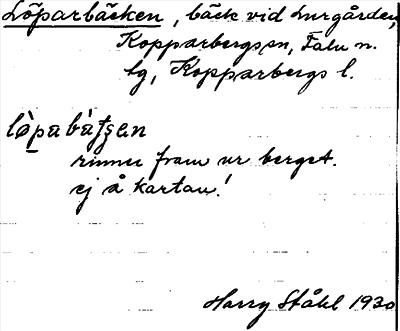 Löparbäcken, bäck vid Lurgården,
Kopparbergs sn, Falu n.
lg, Kopparbergs l.
rinner fram ur berget.
ej å kartan!
Harry Ståhl 1930